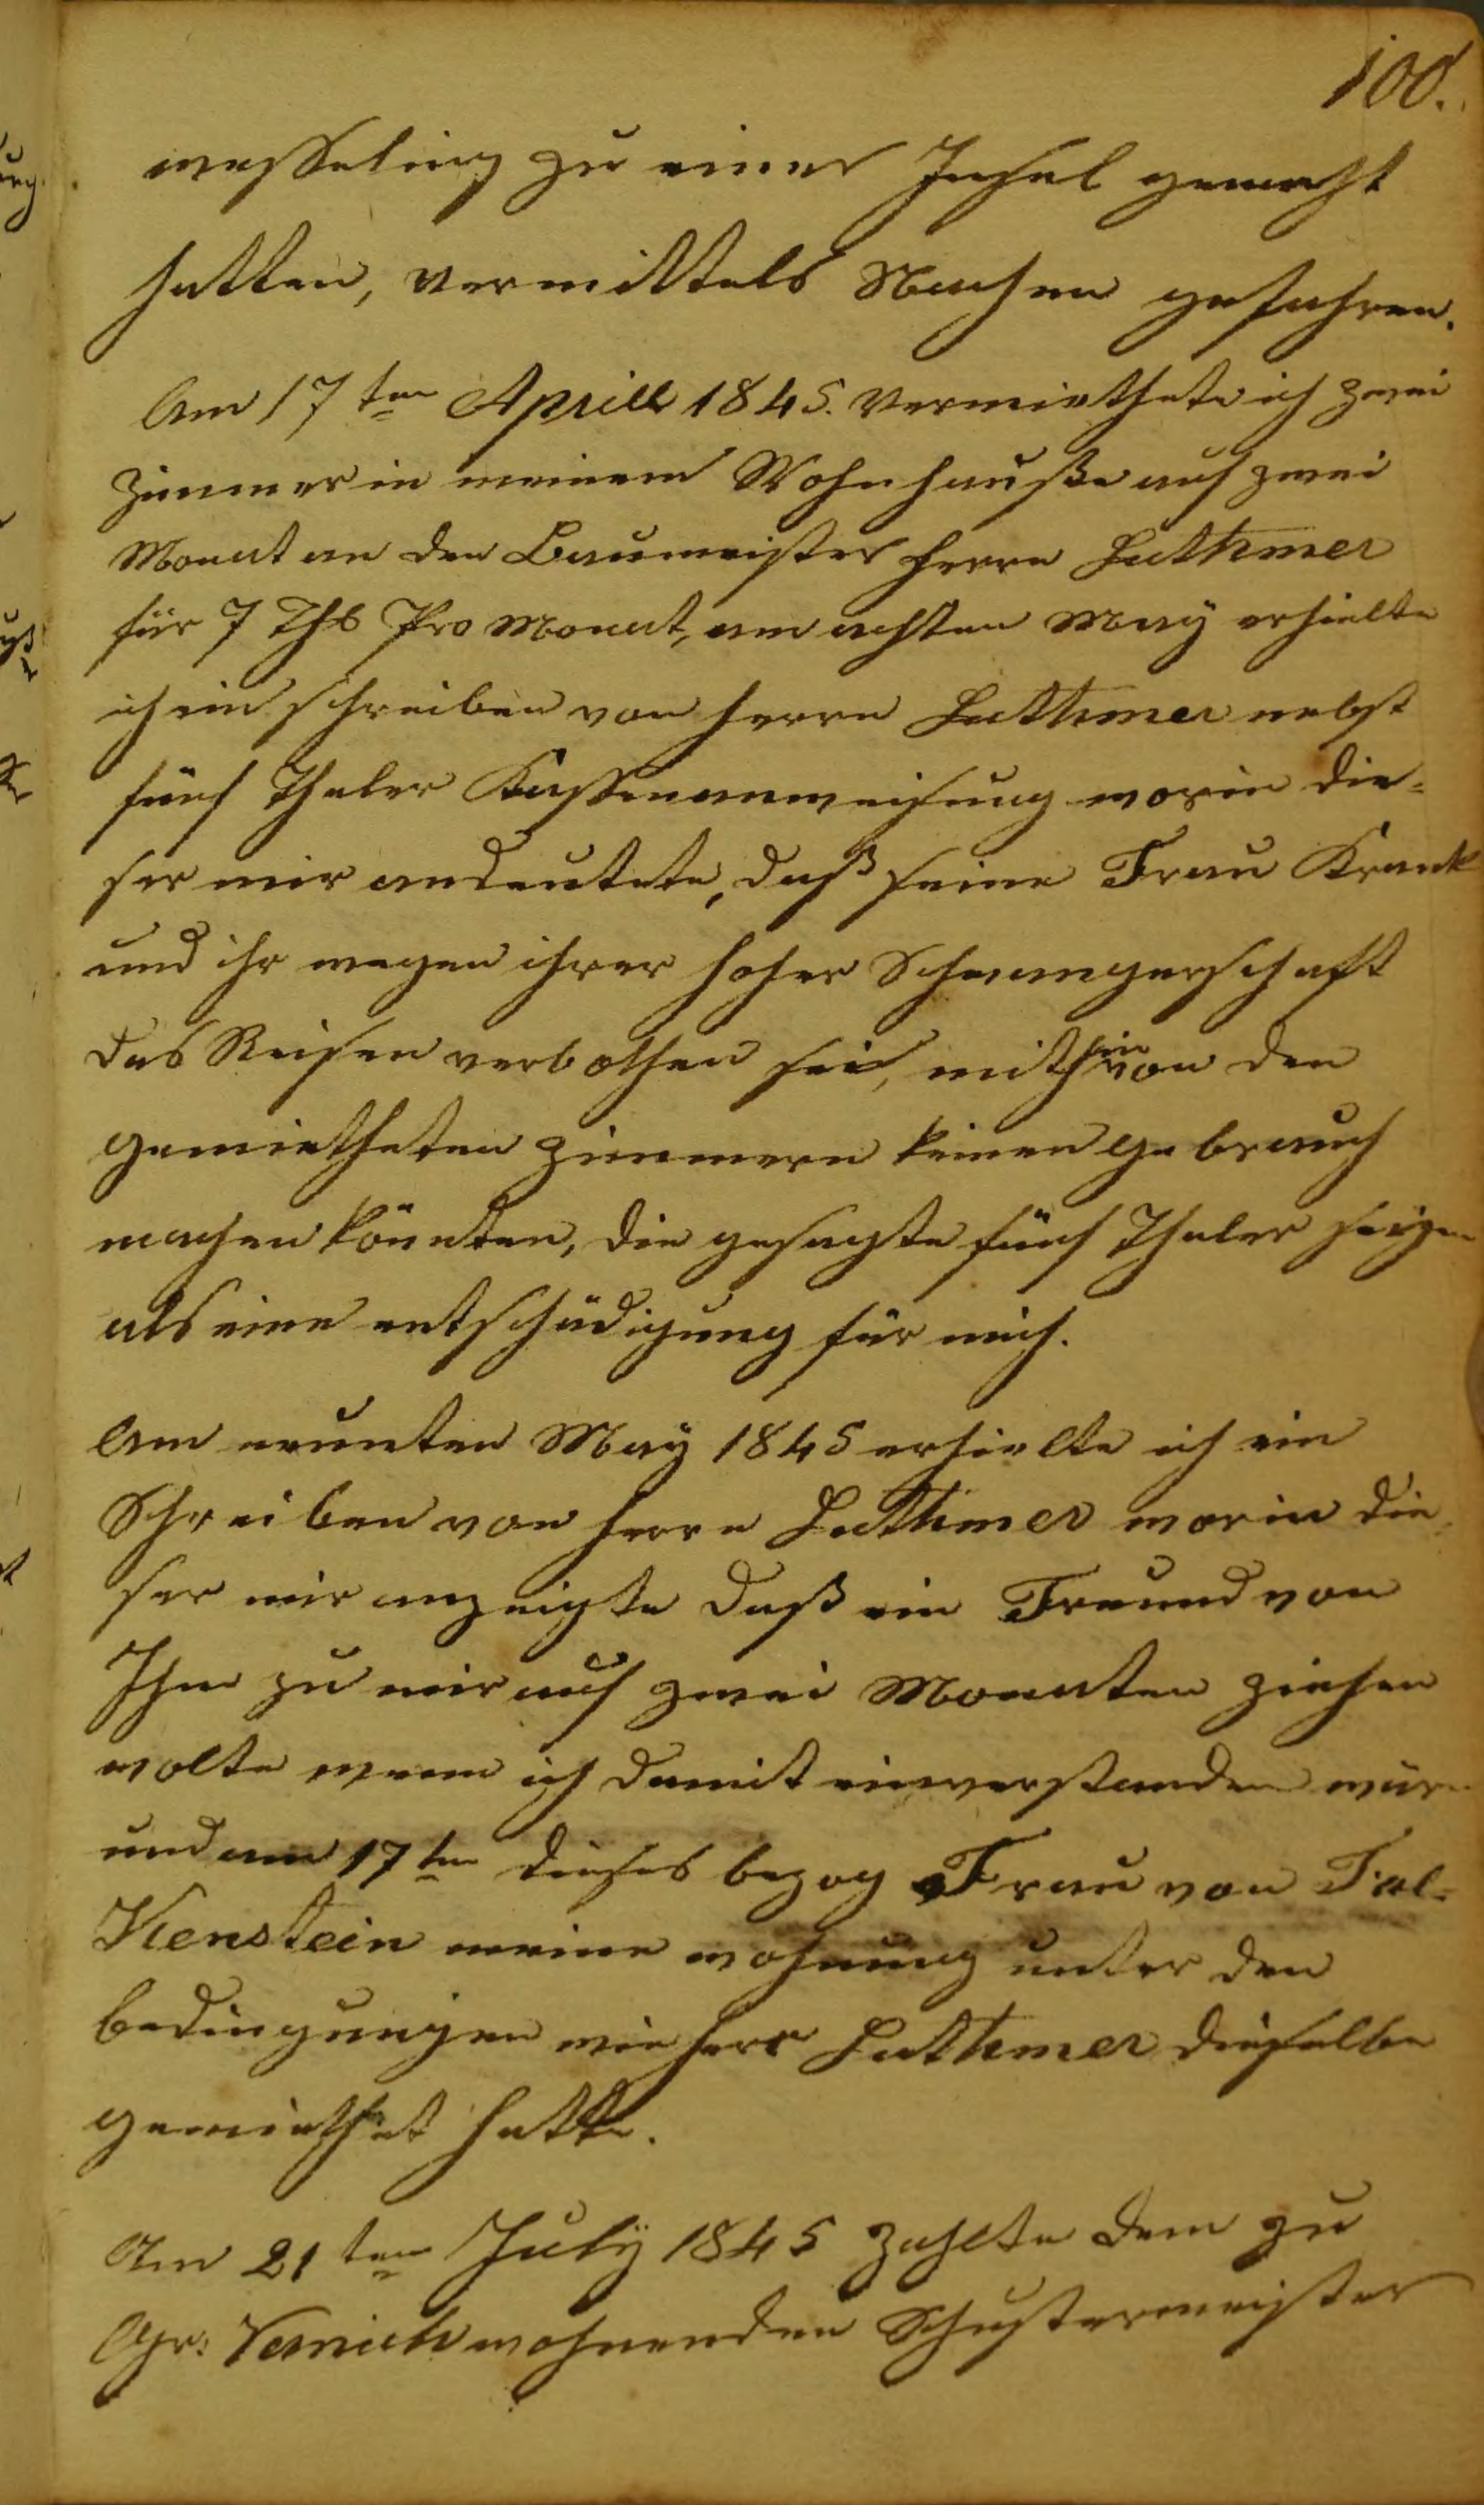 100.
wesseling zu einer Insel gemacht
hatten, vermittels Nachen gefahren.
Am 17ten Aprill 1845. vermiethete ich zwei
Zimmer in meinem Wohnhauße auf zwei
Monat an den Baumeister Herrn Luthmer
für 7 Thlr Pro Monat, am achten May erhielte
ich ein schreiben von Herrn Luthmer nebst
fünf Thaler Kassenanweisung worin die-
ser mir andeutete, daß seine Frau Krank
und ihr wegen ihrer hoher Schwangerschaft
das Reisen verbothen sei, mithin von den
gemietheten Zimmern keinen gebrauch
machen könnten, die gesagte fünf Thaler seyen
als eine entschädigung für mich.
Am neunten May 1845 erhielte ich ein
Schreiben von Herrn Luthmer worin die-
ser mir anzeigte daß ein Freund von
Ihm zu mir auf zwei Monaten ziehen
wolte wenn ich damit einverstanden wär
und am 17ten dieses bezog Frau von Fal-
Kenstein meine wohnung unter den
bedingungen wie Herr Luthmer dieselbe
gemiethet hatte.
Am 21ten July 1845 zahlte dem zu
Gr: Vernich wohnenden Schustermeister